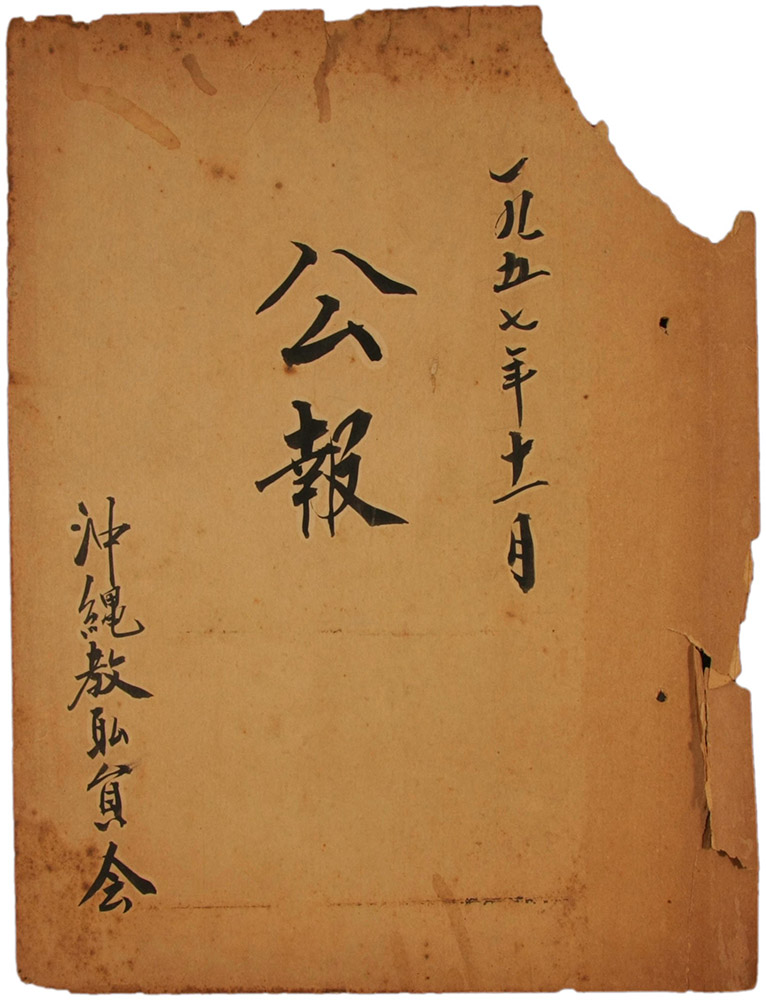 一九五七年十一月
公報
沖縄教耺員会